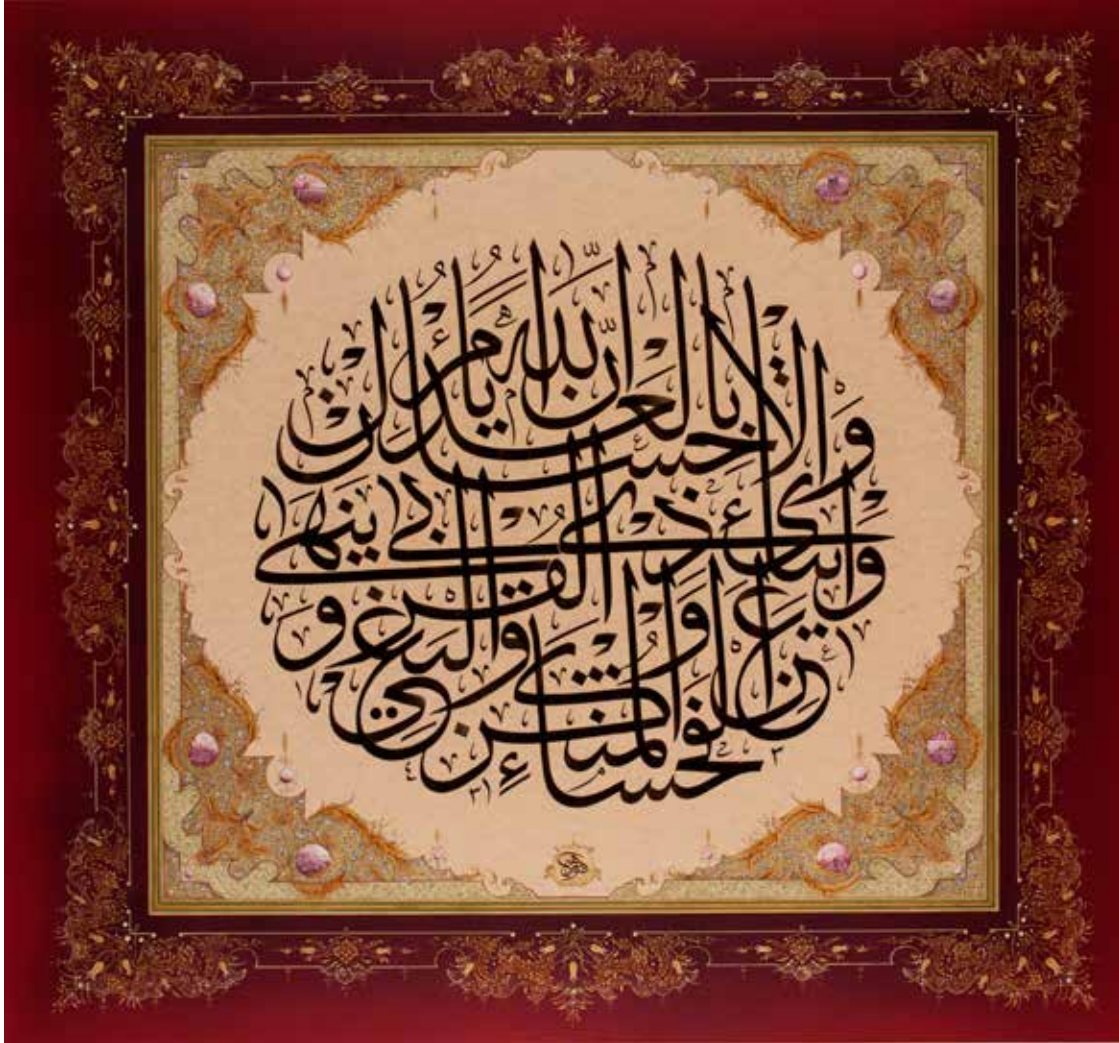 إن الله يأمر بالعدل والإحسان
وإيتائ ذي القربى وينهى
عن الفحشاء والمنكر والبغي